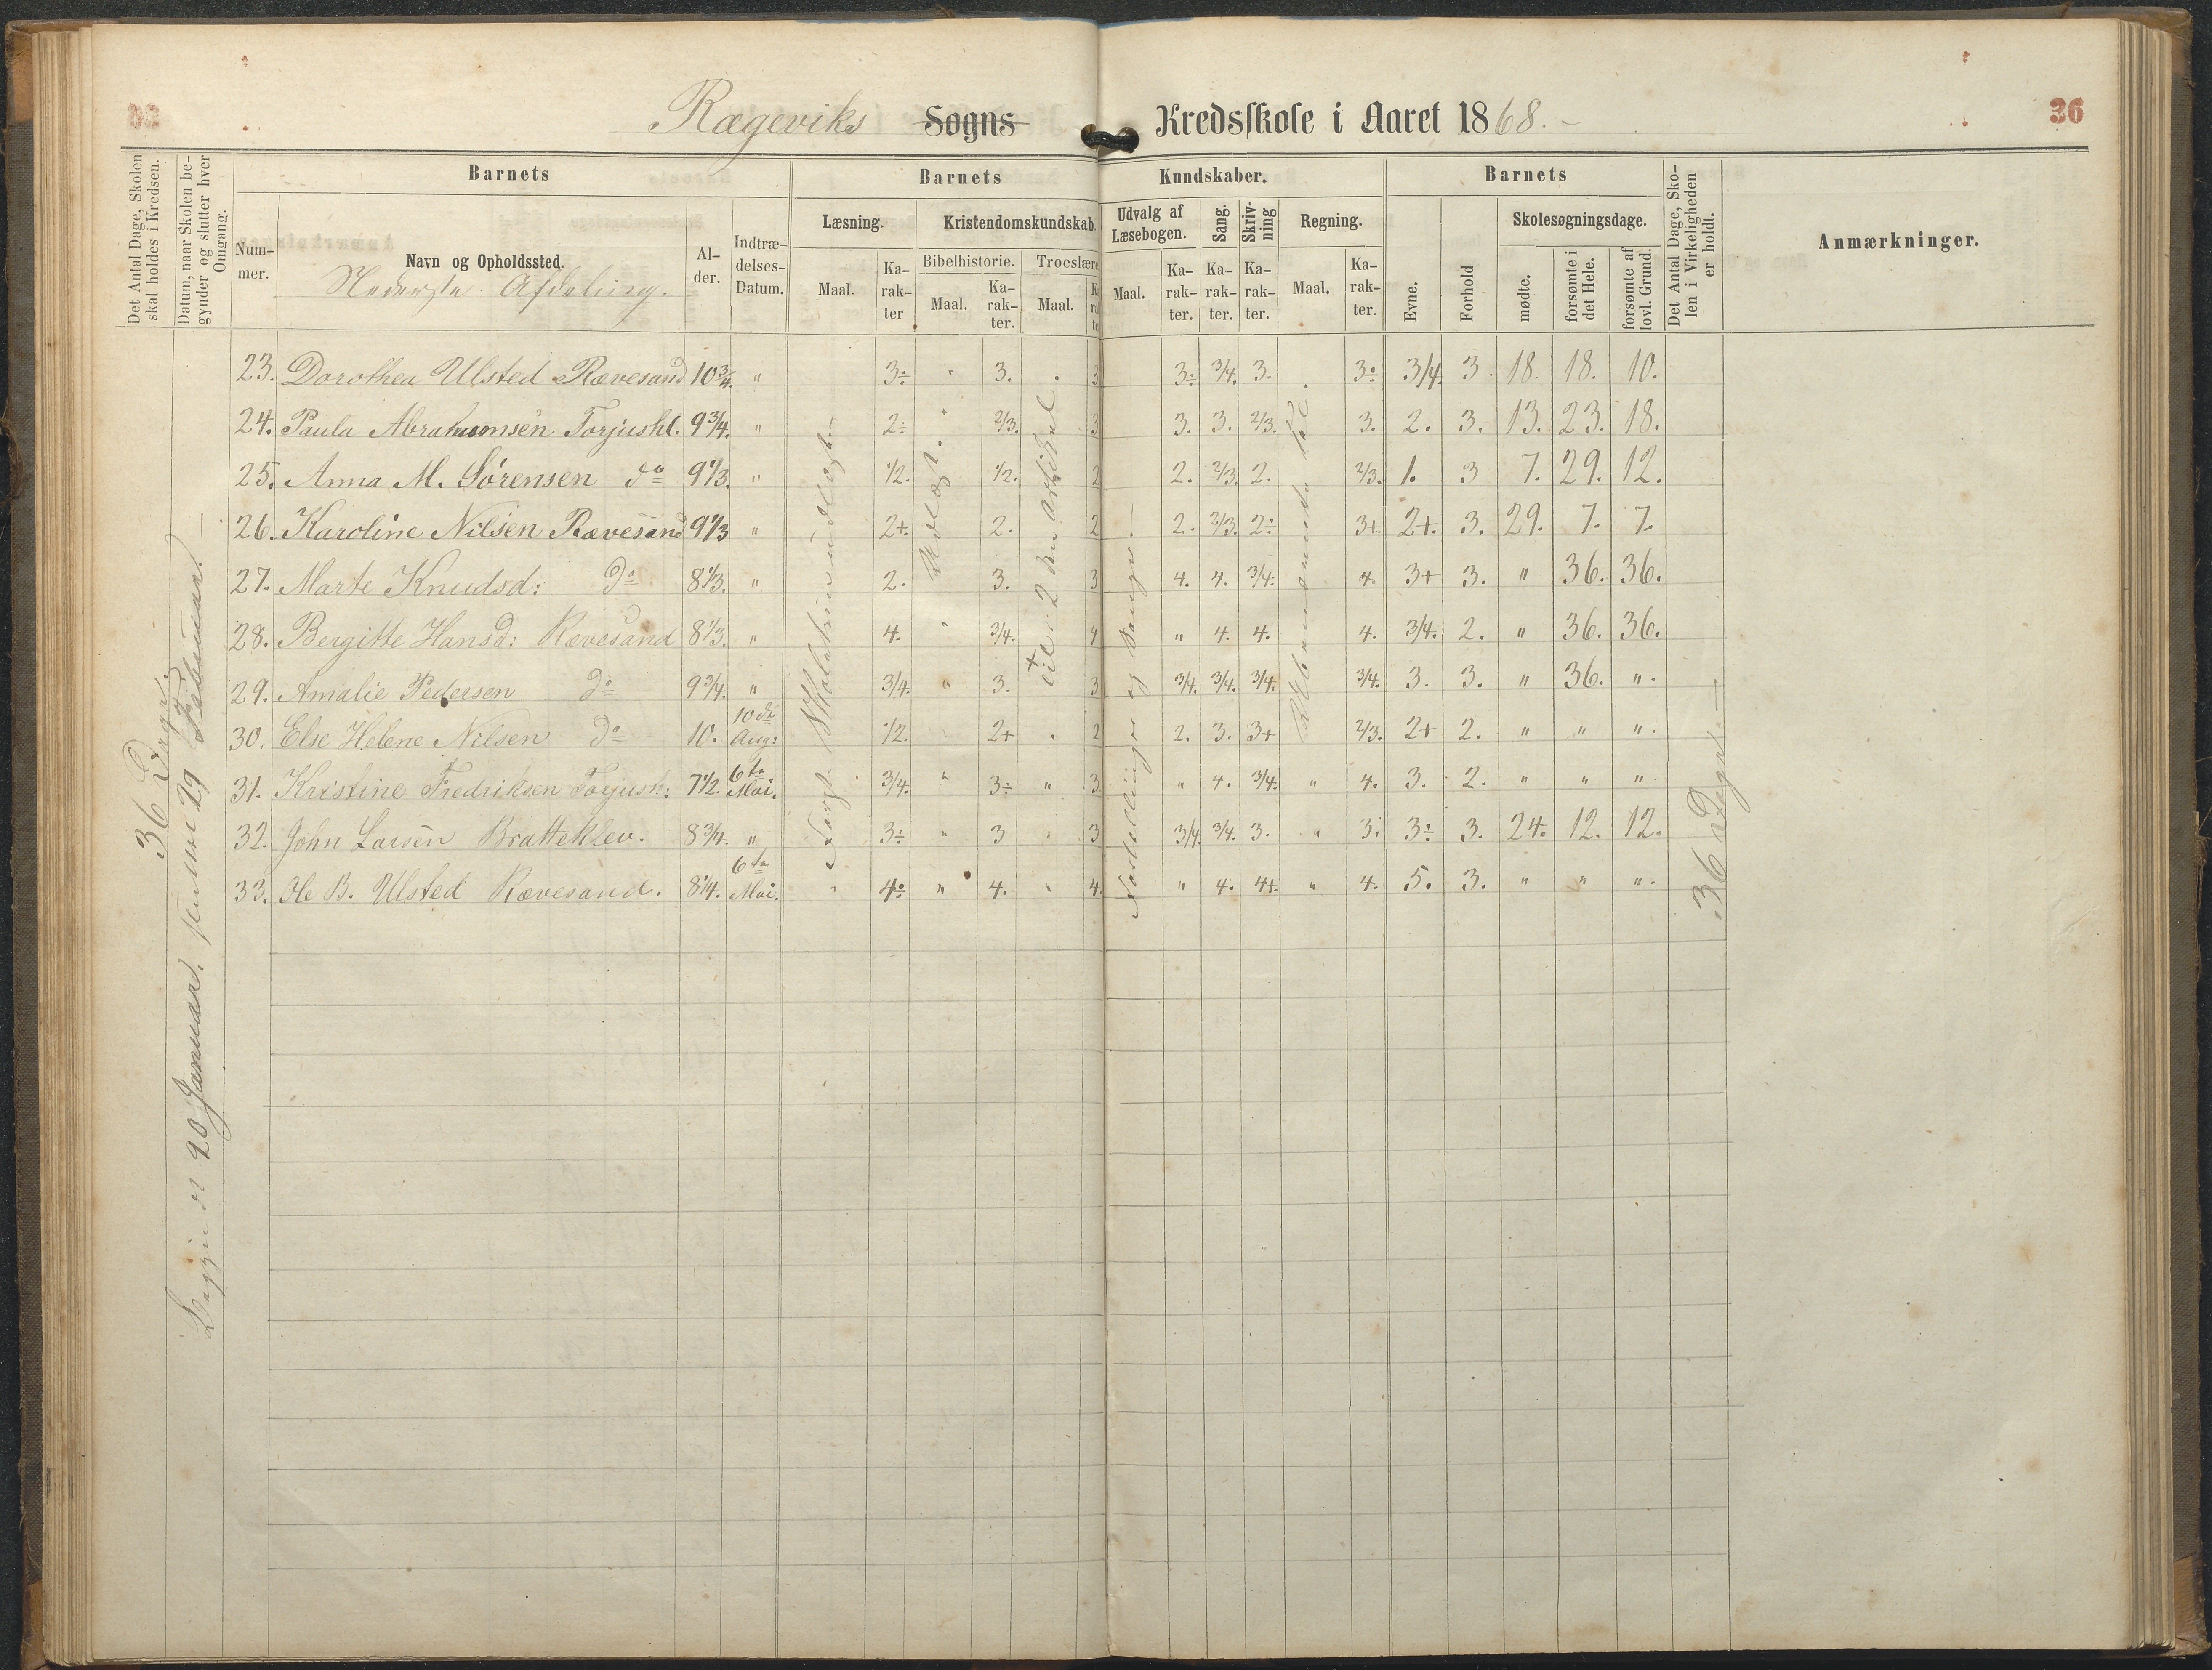 Rægeviks Sogns Kredsskole i Aaret 1868.
36
Det Antal Dage, Skolen skal holdes i Kredsen.
Datum, naar Skolen begynder og slutter hver Omgang.
Barnets
Barnets
Kundskaber.
Barnets
Det Antal Dage, Skolen i Virkeligheden er holdt.
Anmærkninger.
Nummer.
Navn og Opholdssted.
Nederste Afdeling.
Alder.
Indtrædelses-Datum.
Læsning.
Kristendomskundskab.
Udvalg af Læsebogen.
Sang.
Skrivning
Regning.
Skolesøgningsdage.
Bibelhistorie.
Troeslære
Maal.
Karakter
Maal.
Karakter.
Maal.
Maal.
Karakter.
Karakter.
Karakter.
Maal.
Karakter.
Evne.
Forhold
mødte.
forsømte i det Hele.
forsømte af lovl. Grund.
23. Dorothea Ulsted Rævesand 10 3/4. " 3÷ " 3. . 3 3÷ 3/4. 3. 3÷ 3/4. 3. 18. 18. 10.
24. Paula Abrahamsen Torjushl. 9 3/4. " 2÷ " 2/3. 3 3. 3. 2/3. 3. 2. 3. 13. 23. 18.
25. Anna M. Sørensen do 9 1/3. " 1/2. 1/2. 2 2. 2/3. 2. 2/3. 1. 3 7. 29. 12.
26. Karoline Nilsen Rævesand 9 1/3 " 2+. 2. 2 2. 2/3. 2÷ 3+. 2+. 3. 29. 7. 7.
27. Marte Knudsd: do 8 1/3. " 2. 3. 3 4. 4. 3/4. 4. 3+ 3. " 36. 36.
28. Bergitte Hansd: Rævesand 8 1/3. " 4. " 3/4. 4 " 4. 4. 4. 3/4. 2. " 36. 36.
29. Amalie Pedersen do 9 3/4. " 3/4. " 3. 3 3/4. 3/4. 3/4. 3/4. 3. 3. " 36. ".
30. Else Helene Nilsen do 10. 10de Aug: 1/2. 2+ . 2 2. 3. 3+ 2/3. 2+ 2. " " ".
31. Kristine Fredriksen Torjush: 7 1/2. 6te Mai. 3/4. " 3÷ " 3. " 4. 3/4. " 4. 3. 2. " " "
32. John Larsen Bratteklev. 8 3/4. " 3÷ " 3 " 3 3/4. 3/4. 3. " 3. 3÷ 3. 24. 12. 12.
33. Ole B. Ulsted Rævesand. 8 1/4. 6te Mai. " 4÷ " 4. " 4. " 4. 4+. " 4. 5. 3. " " ".
36 Dage.
20 Januar. 29 Februar.
til 2den Artikel
og Sange.
36 Dage.